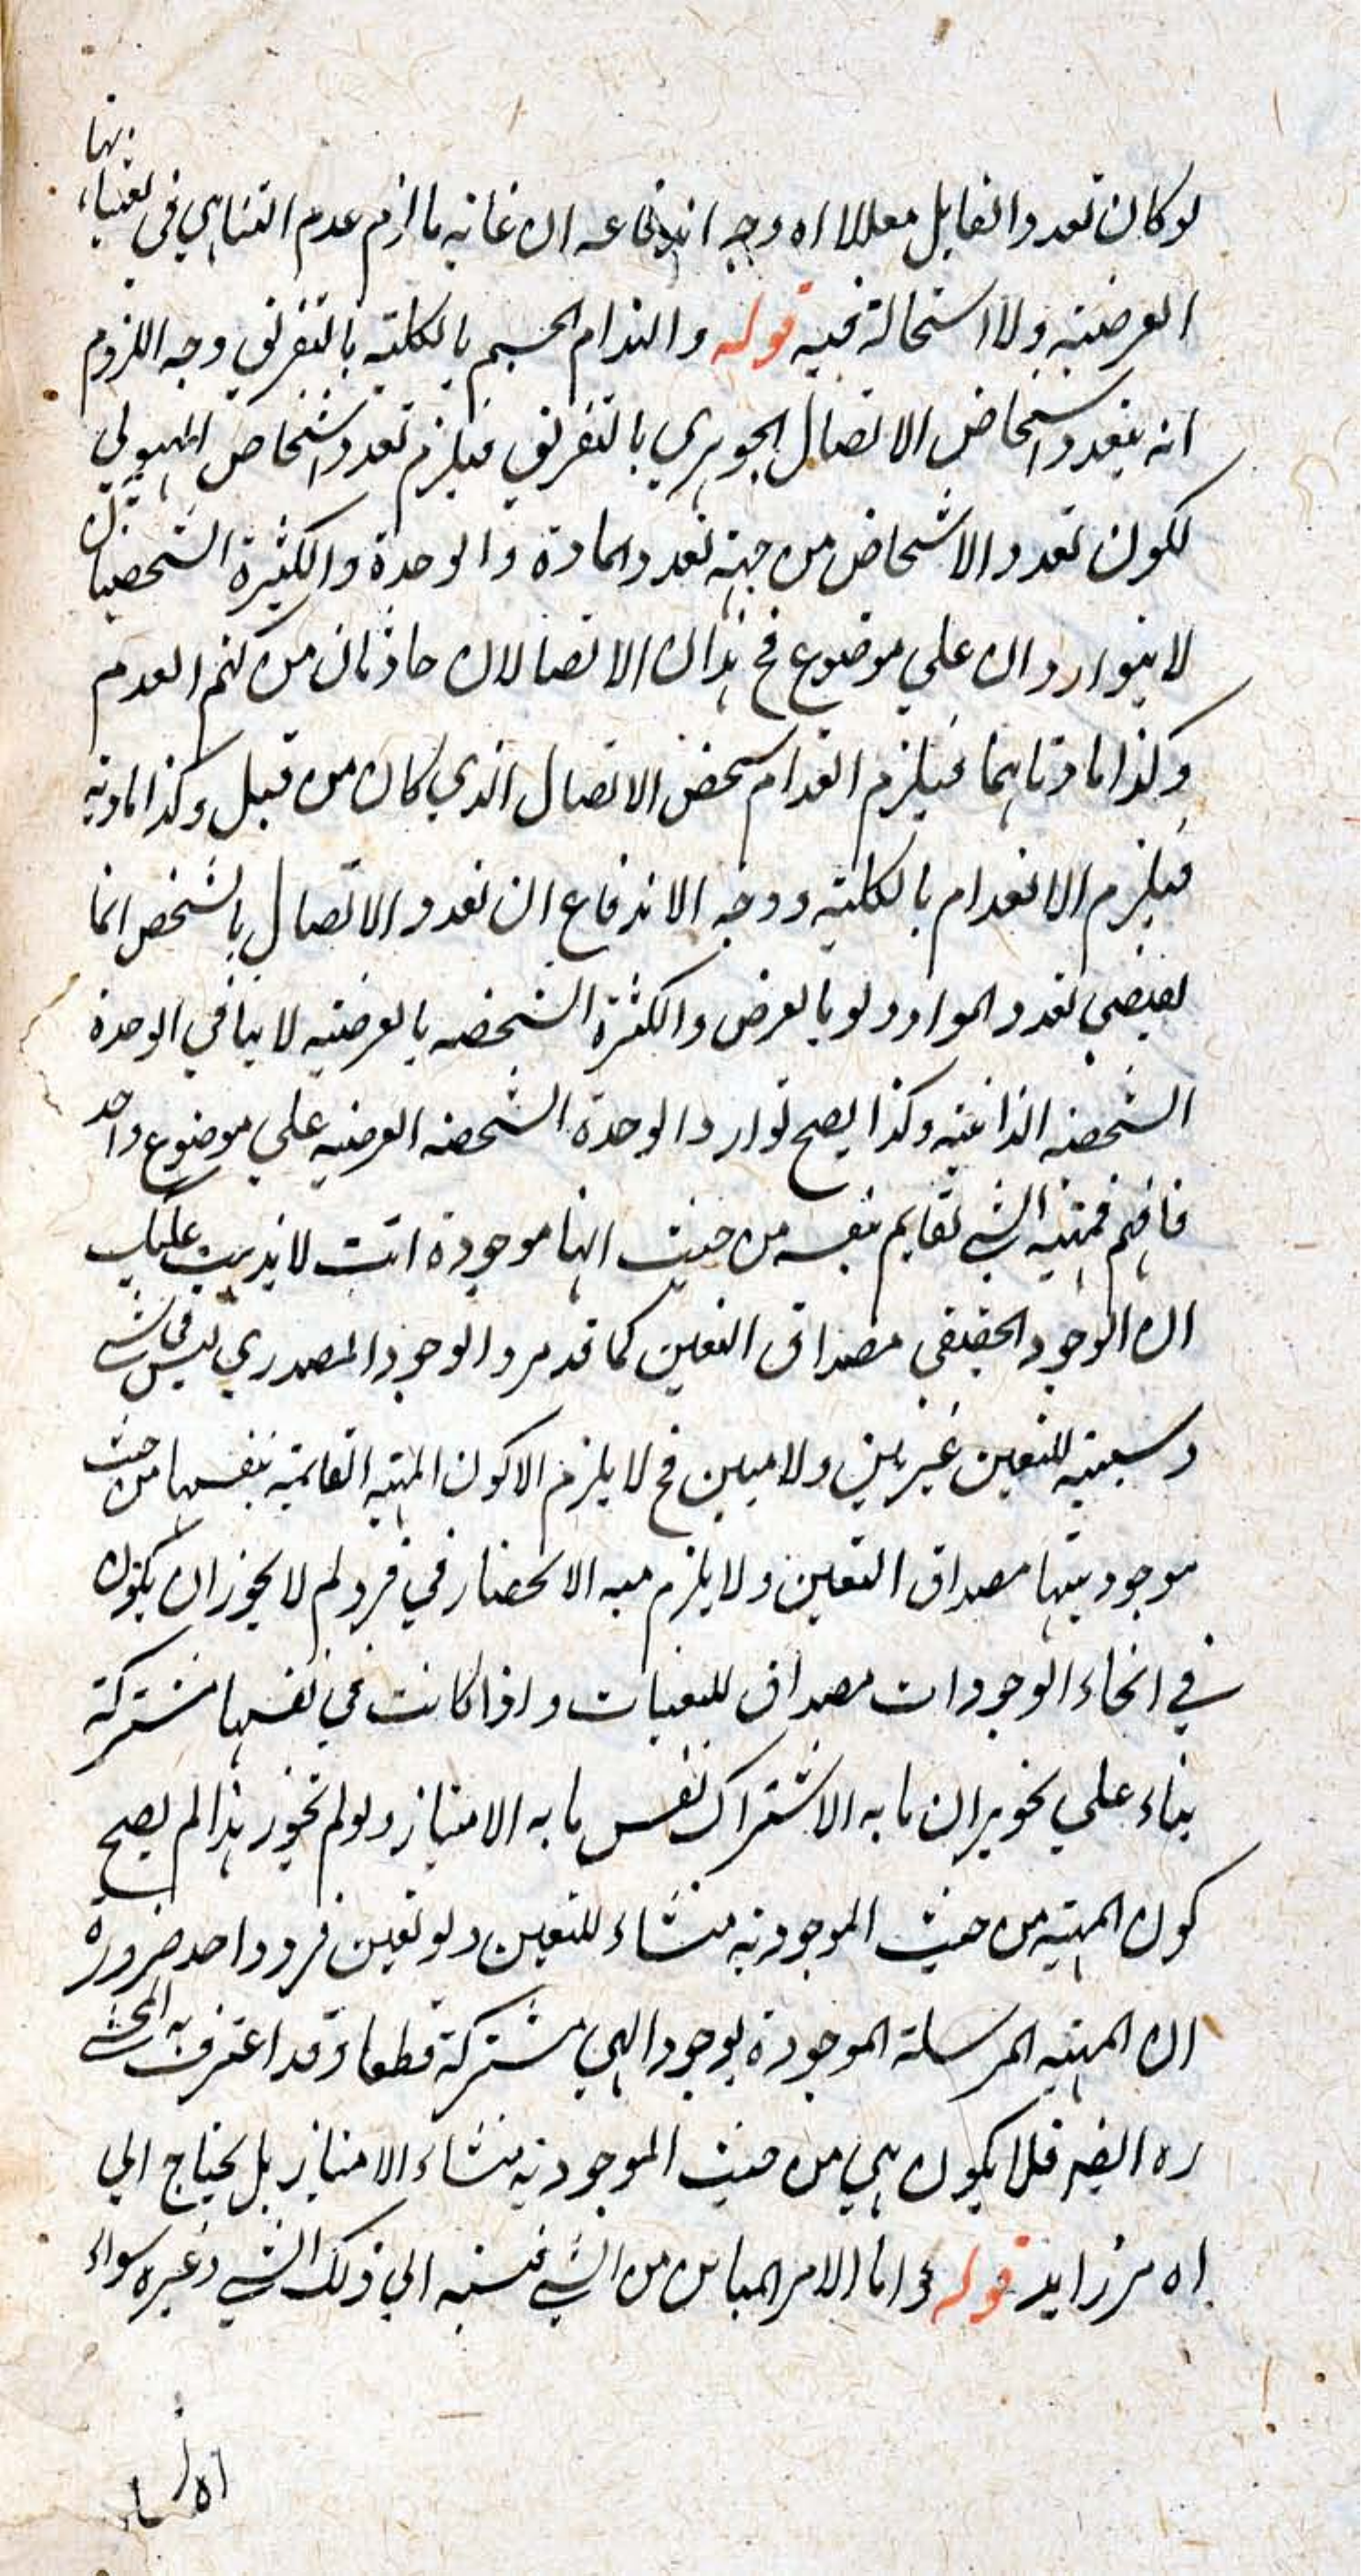 لو كان تعدد القابل معللا اه وجه اندفاعه ان غايته ما لزم عدم التناهي في تعيناتها
العرضية ولا استحالة فيه قوله وانعدام الجسم بالكلية بالتفريق وجه اللزوم
انه يتعدد اشخاص الاتصال الجوهري بالتفريق فيلزم تعدد اشخاص الهيولي
لكون تعدد الاشخاص من جهة تعدد المادة والوحدة والكثرة الشخصيتان
لا يتواردان علي موضوع فح هذان الاتصالان حادثان من كتم العدم
وكذا مادتاهما فيلزم انعدام شخص الاتصال الذي كان من قبل وكذا مادته
فيلزم الانعدام بالكلية ووجه الاندفاع ان تعدد الاتصال بالشخص انما
يقتضي تعدد المواد ولو بالعرض والكثرة الشخصية بالعرضية لا ينافي الوحدة
الشخصية الذاتية وكذا يصح توارد الوحدة الشخصية العرضية علي موضوع واحد
فافهم قوله فمهية الشي تقايم بنفسه من حيث انها موجودة انت لا يذهب عليك
ان الوجود الحقيقي مصداق التعين كما قد مر والوجود المصدري ليس في شي
وسببيته للتعين غير بين ولا مبين فح لا يلزم الا كون المهية القائمة بنفسها من حيث
موجوديتها مصداق التعين ولا يلزم منه الانحصار في فرد لم لا يجوز ان يكون
في انحاء الوجودات مصداق للتعينات واذا كانت في نفسها مشتركة
بناء علي تجويز ان ما به الاشتراك نفس ما به الامتياز ولو لم يجوز هذا لم يصح
كون المهية من حيث الموجودية منشاء للتعين ولو تعين فرد واحد ضرورة
ان المهية المرسلة الموجودة بوجود الهي مشتركة قطعا وقد اعترف به المحشي
ره ايضا فلا يكون هي من حيث الموجودية منشاء الامتياز بل يحتاج الي
امر زايد قوله واما الامر المباين من الشي فنسبته الي ذلك الشي وغيره سواء